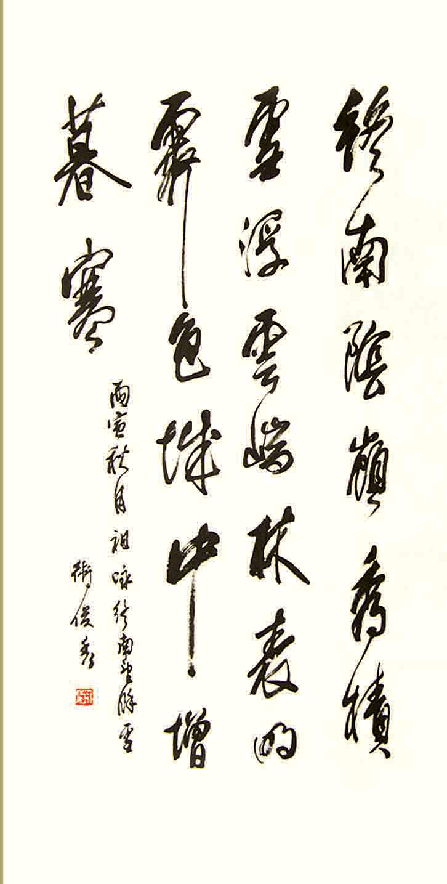 终南阴岭秀積
雪浮雲端林表明
霽色城中增
暮寒
丙寅秋月祖咏终南望餘雪
衛俊秀